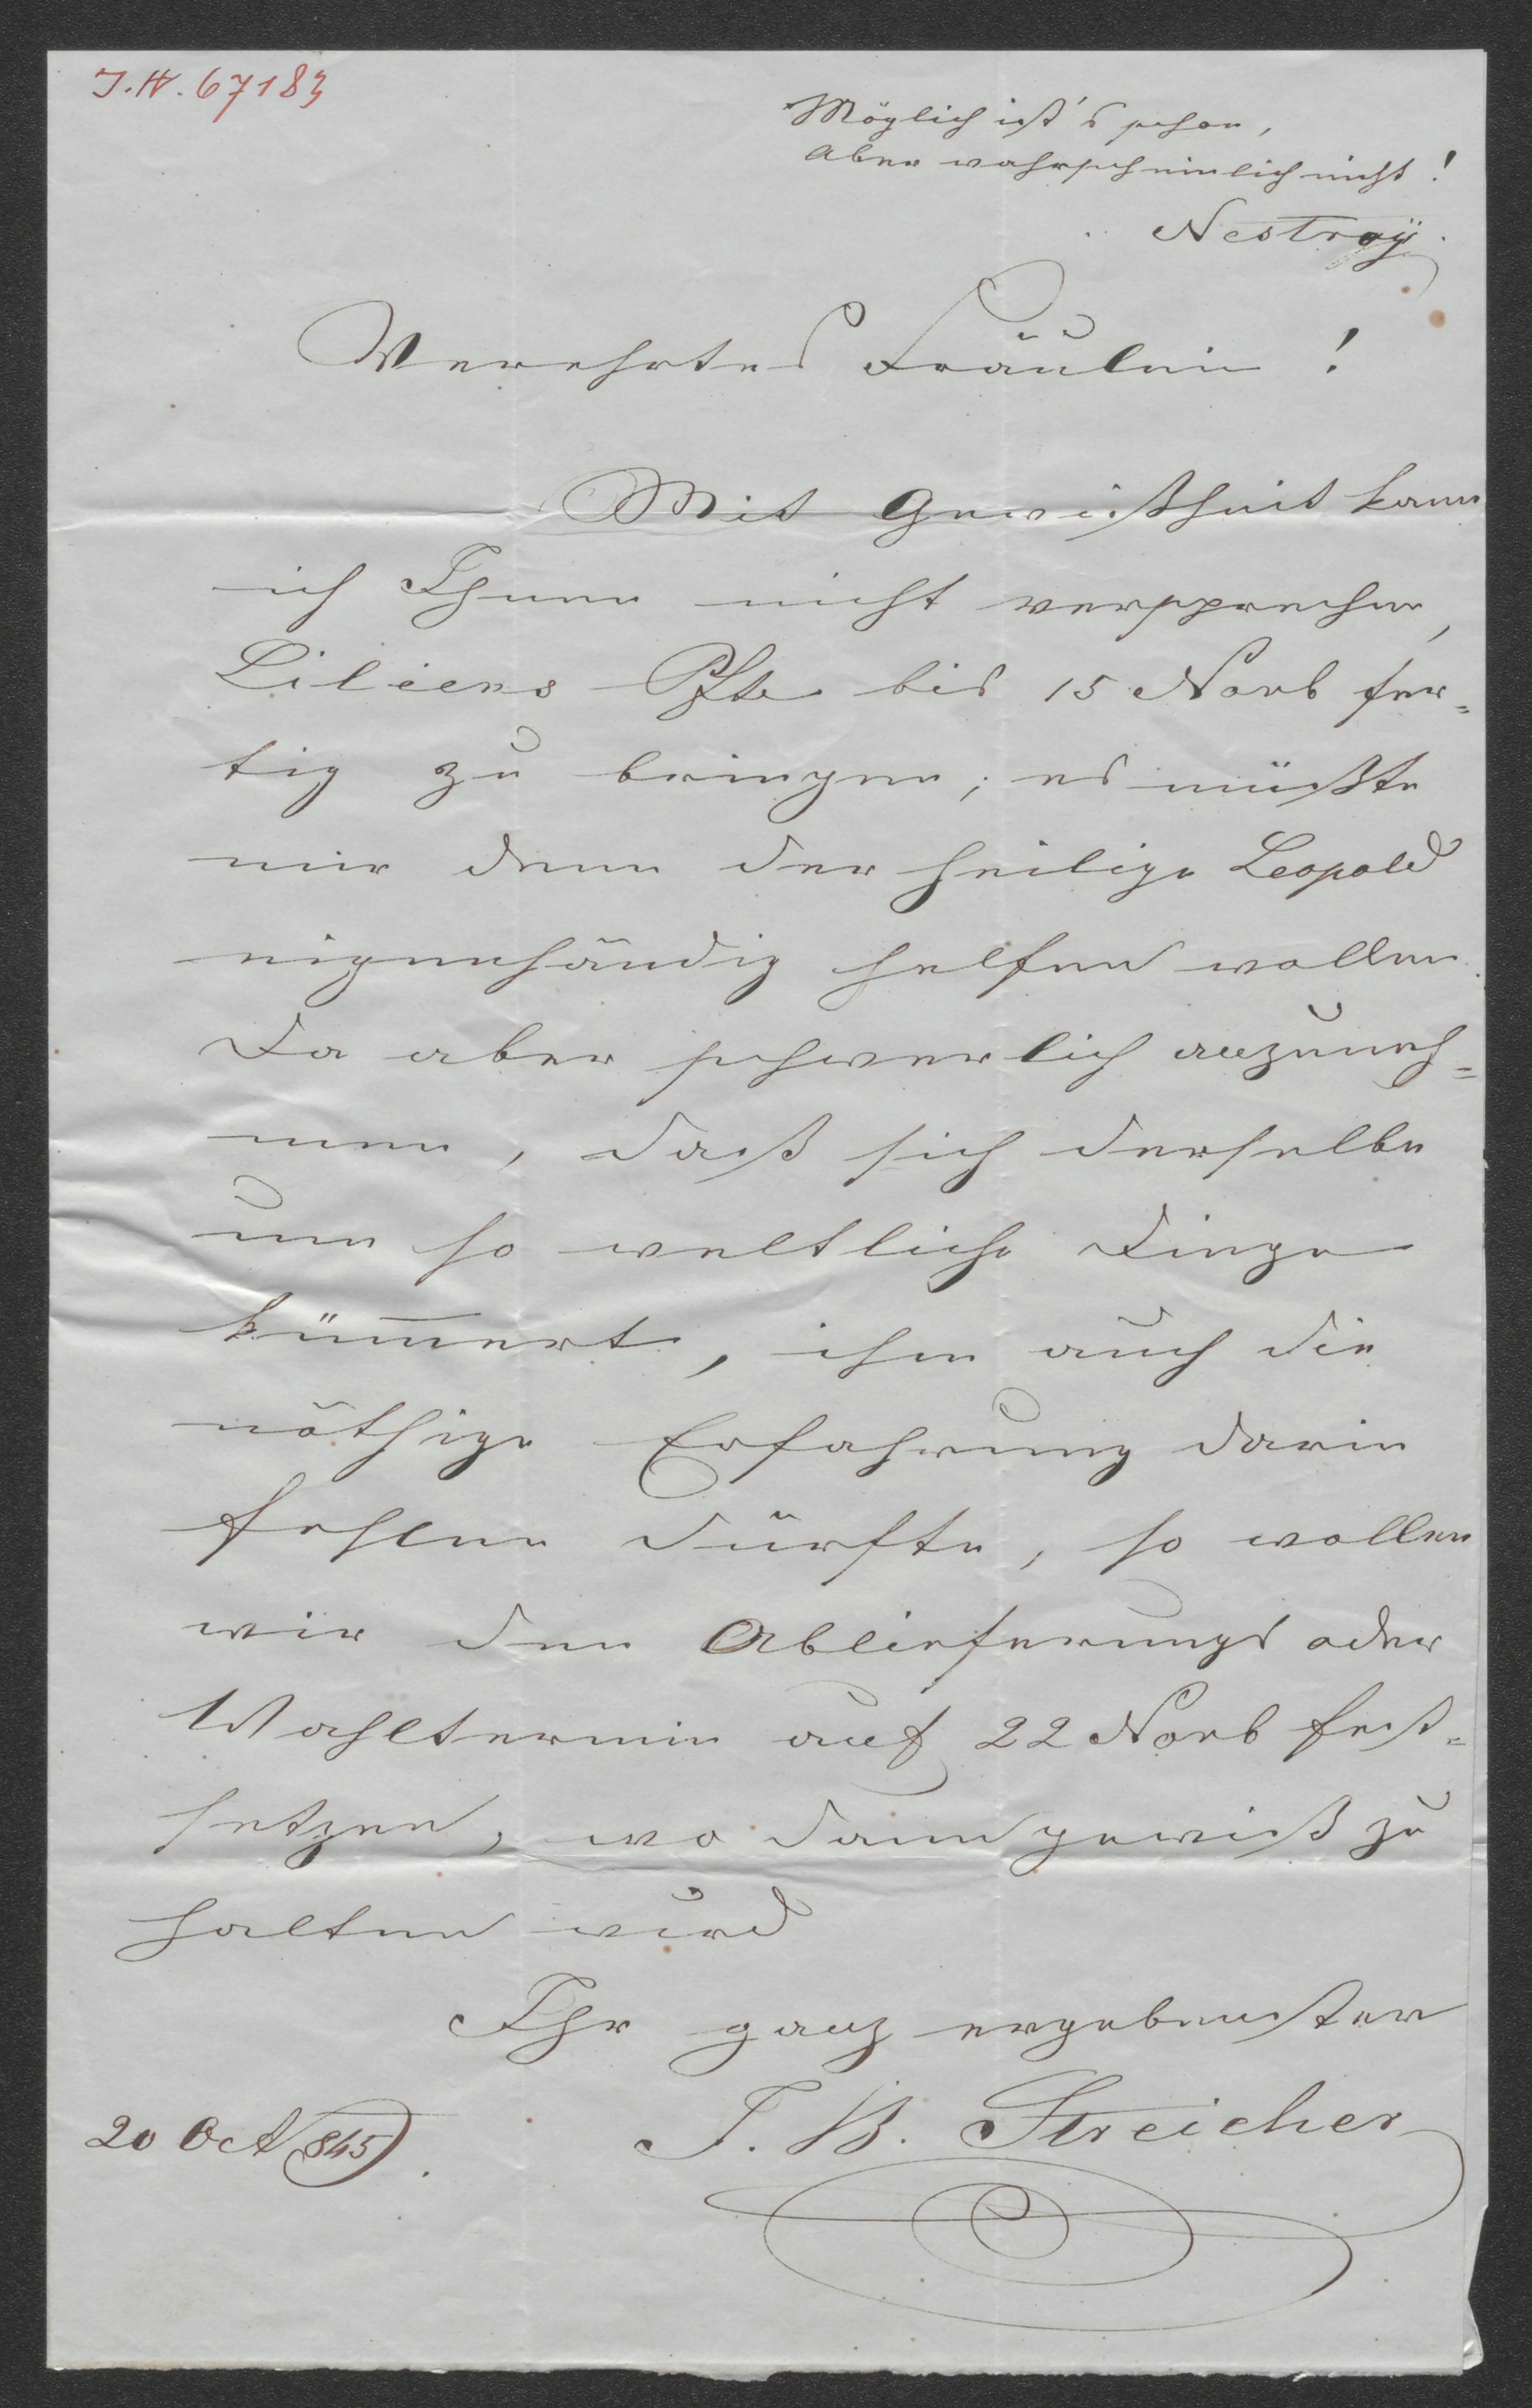 I.N. 67183
Möglich ist's schon,
aber wahrscheinlich nicht!
Nestroÿ.
Verehrtes Fräulein!
Mit Gewißheit kann
ich Ihnen nicht versprechen,
Liliens Pfte bis 15 Novb fer=
tig zu bringen; es müßte
mir denn der heilige Leopold
eigenhändig helfen wollen.
Da aber schwerlich anzuneh=
men, daß sich derselbe
um so weltliche Dinge
küm̅ert, ihm auch die
nöthige Erfahrung darin
fehlen dürfte, so wollen
wir den Ablieferungs oder
Wahltermin auf 22 Novb fest=
setzen, wo dann gewiß zu
halten wird
Ihr ganz ergebenster
J. B. Streicher
20 Oct 845.